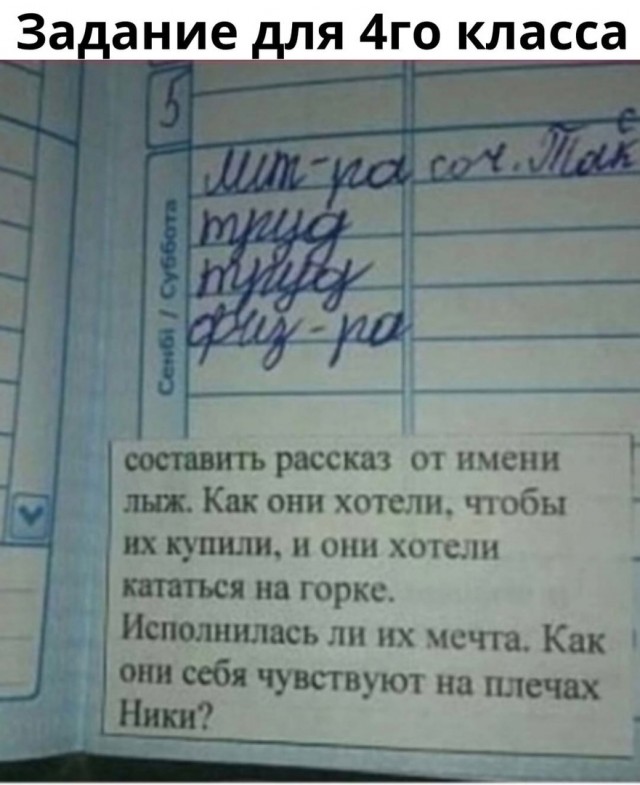 Задание для 4го класса
5
Сенбі / Суббота
лит-ра соч.
труд
труд
физ-ра
составить рассказ от имени
лыж. Как они хотели, чтобы
их купили, и они хотели
кататься на горке.
Исполнилась ли их мечта. Как
они себя чувствуют на плечах
Ники?